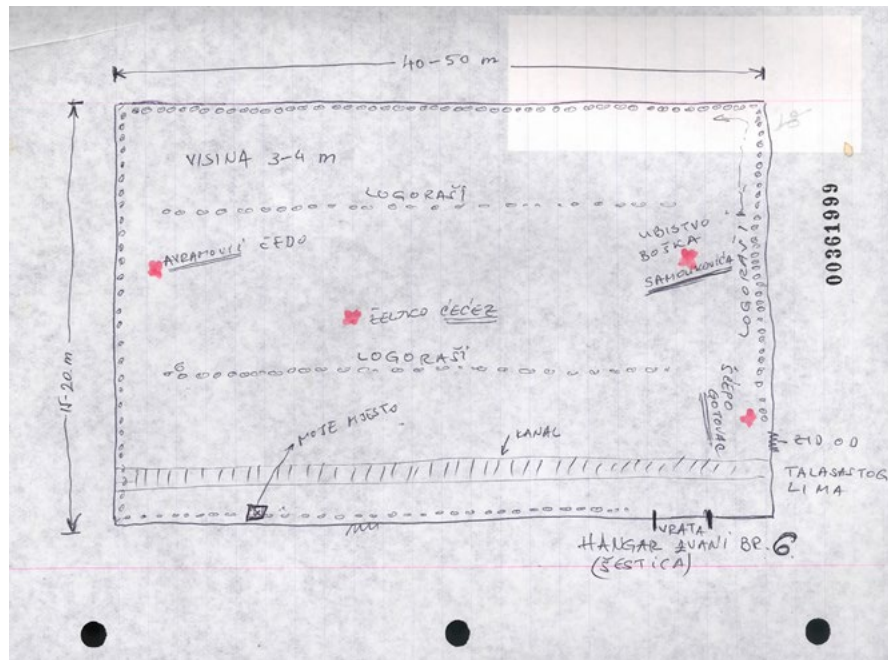 40-50 m
VISINA 3-4 m
LOGORAŠI
AVRAMOVIĆ ČEDO
UBISTVO
BOŠKA
SAMOUKOVIĆA
LOGORAŠI
00361999
ŽELJKO ĆEĆEZ
LOGORAŠI
15-20 m
ŠĆEPO
GOTOVAR
MOJE MJESTO
KANAL
ZID OD
TALASASTOG
LIMA
VRATA
HANGAR ZVANI BR. 6
(ŠESTICA)